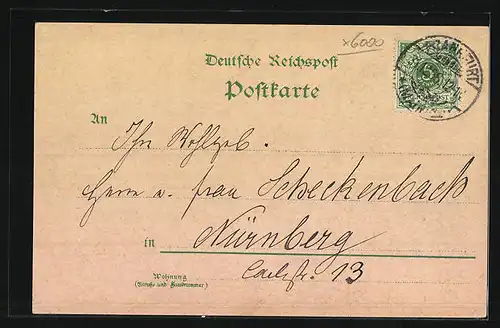 x6000
Deutsche Reichspost
Postkarte
An
Ihr Wohlgeb.
Herrn u. frau Scheckenbach
in Nürnberg
13
Wohnung
(Straße und Hausnummer)
5